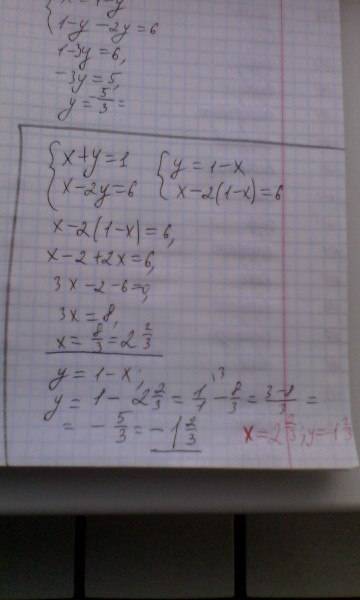 x = 1-y
1-y-2y=6
1-3y=6,
-3y=5,
y=5/3=
{x+y=1 {y=1-x
{x-2y=6 {x-2(1-x)=6
x-2(1-x)=6,
x-2+2x=6,
3x-2-6=0,
3x=8,
x=8/3=2 2/3
y=1-x;
y=1-2 2/3=1/1-8/3=3-8/3=
=-5/3=-1 2/3
x=2 2/3; y=-1 2/3